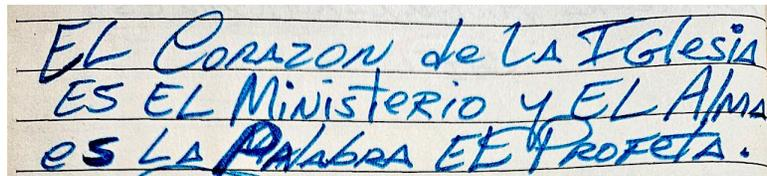 EL CORAZON de LA IGlesia
ES EL MinisTERIO y EL AlmA
es LA PALAbRA EE PROFETA.